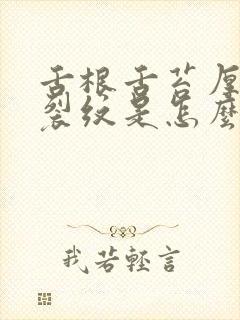 舌根舌苔厚
裂纹是怎麽
我若輕言